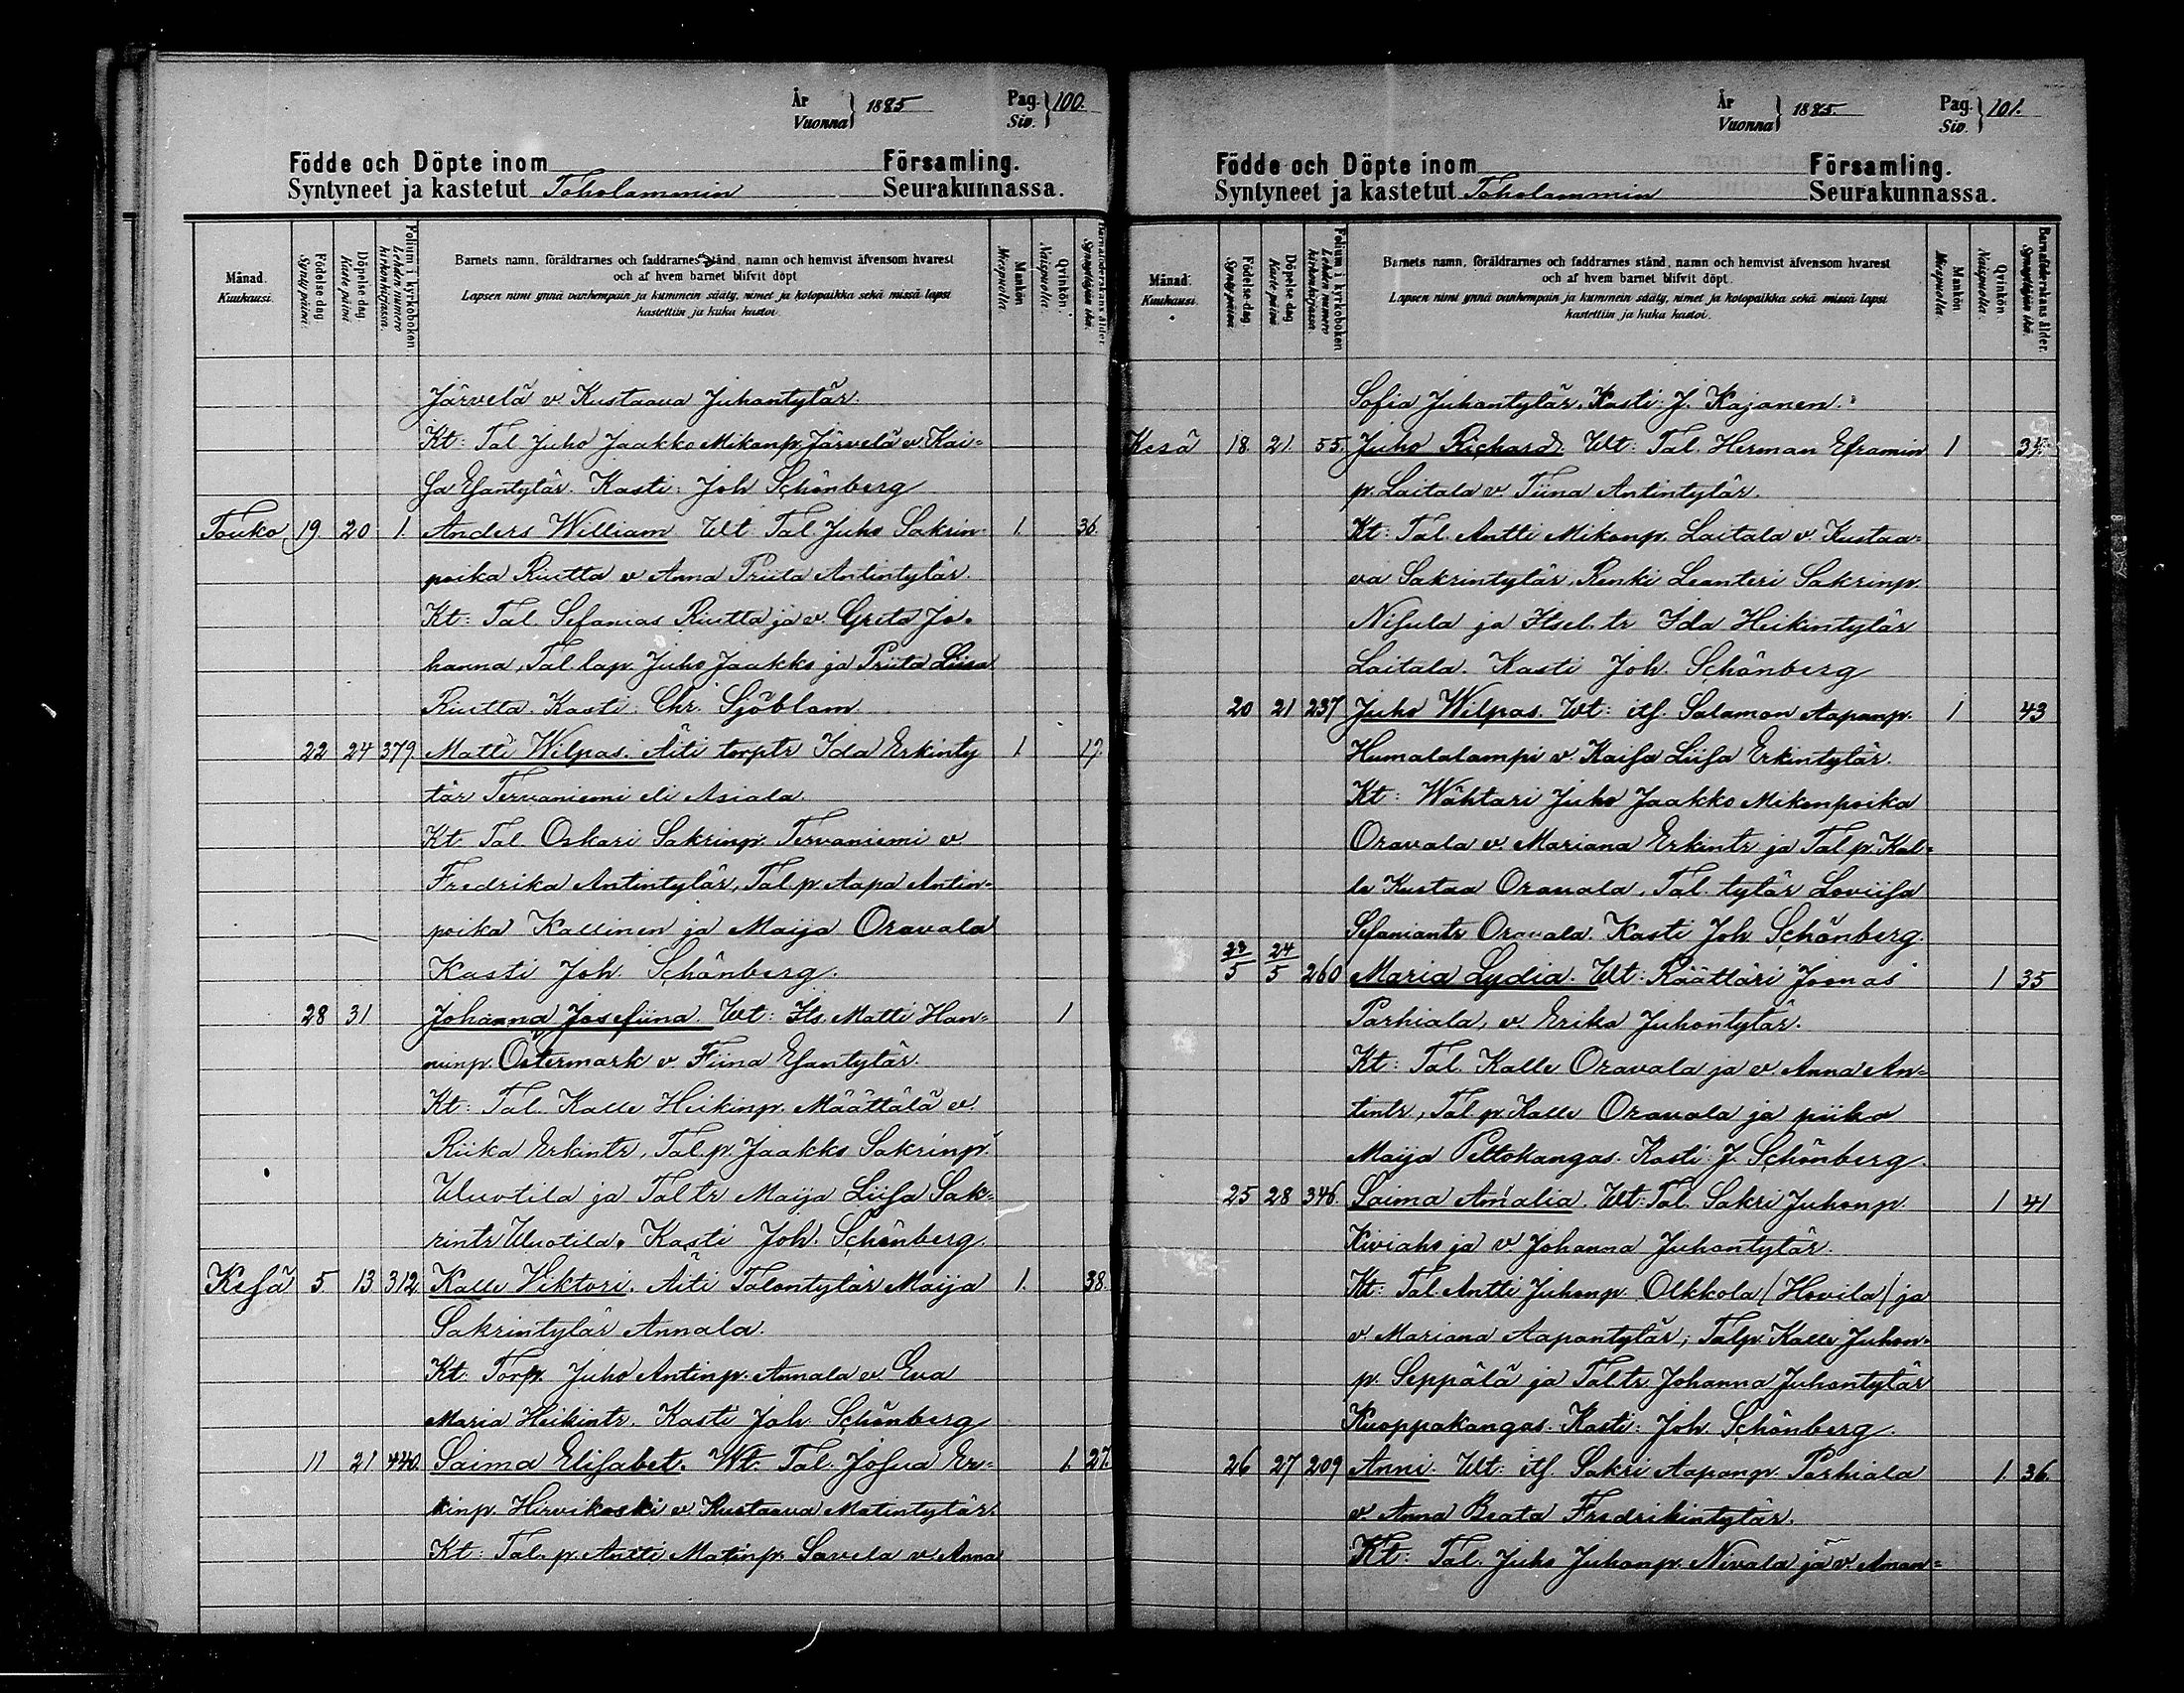 År
Vuonna } 1885
Pag.
Siv. } 100.
Födde och Döpte inom Församling.
Syntyneet ja kastetut Toholammin Seurakunnassa.
Månad.
Kuukausi.
Födelse-dag.
Synty päivä.
Döpelse-dag.
Kaste päivä
Folium i kyrkoboken
Lehden numero kirkonkirjassa.
Barnets namn, föräldrarnes och faddrarnes stånd, namn och hemvist äfvensom hvarest
och af hvem barnet blifvit döpt
Lapsen nimi ynnä vanhempain ja kummein sääty, nimet ja kotopaikka sekä missä lapsi
kastettiin ja kuka kastoi.
Mankön
Miespuolia.
Qvinkön.
Naispuolia.
Barnaföderskans ålder.
Synnyttäjän ikä.
Järvelä v. Kustaava Juhontytär.
Kt: Tal. Juho Jaakko Mikonp. Järvelä v. Kai=
sa Esantytär. Kasti: Joh Schönberg
Touko 19 20 1. Anders William Wt Tal. Juho Sakrin- 1. 36.
poika Riutta v Anna Priita Antintytär.
Kt: Tal. Sefanias Riutta ja v. Greta Jo-
hanna, Tal. lap. Juho Jaakko ja Priita Liisa
Riutta. Kasti: Chr. Sjöblom
22 24 379. Matti Wilpas. Äiti torptr Ida Erkinty 1. 19.
tär Tervaniemi eli Asiala.
Kt. Tal. Oskari Sakrinp. Tervaniemi v.
Fredrika Antintytär, Tal. p. Aapa Antin=
poika Kallinen ja Maija Oravala
Kasti Joh. Schönberg.
28 31 Johanna Josefiina. Wt: Its. Matti Han= 1
ninp. Östermark v. Fiina Esantytär.
Kt: Tal. Kalle Heikinp. Määttälä v.
Riika Erkintr, Tal. p. Jaakko Sakrinp.
Uluotila ja Tal tr Maija Liisa Sak=
rintr Uluotila. Kasti Joh. Schönberg.
Kesä 5. 13 312. Kalle Viktori. Äiti Talontytär Maija 1. 38.
Sakrintytär Annala.
Kt: Torp. Juho Antinp. Annala v. Eva
Maria Heikintr. Kasti Joh. Schönberg
11 21 440. Saima Elisabet. Wt. Tal. Josua Er= 1. 27.
kinp. Hirvikoski v. Kustaava Matintytär.
Kt: Tal. p. Antti Matinp. Savela v. Anna
År
Vuonna } 1885.
Pag.
Siv. } 101.
Födde och Döpte inom Församling.
Syntyneet ja kastetut Toholammin Seurakunnassa.
Månad.
Kuukausi.
Födelse-dag.
Synty päivä.
Döpelse-dag
Kaste päivä
Folium i kyrkoboken
Lehden numero kirkonkirjassa.
Barnets namn, föräldrarnes och faddrarnes stånd, namn och hemvist äfvensom hvarest
och af hvem barnet blifvit döpt.
Lapsen nimi ynnä vanhempain ja kummein sääty, nimet ja kotopaikka sekä missä lapsi
kastettiin ja kuka kastoi.
Mankön
Miespuolia.
Qvinkön.
Naispuolia.
Barnaföderskans ålder.
Synnyttäjän ikä.
Sofia Juhontytär. Kasti: J. Kajanen.
Kesä 18. 21. 55. Juho Richard. Wt: Tal. Herman Eframin 1
p. Laitala v. Tiina Antintytär.
Kt: Tal. Antti Mikonp. Laitala v. Kustaa=
va Sakrintytär. Renki Leanteri Sakrinp.
Nisula ja Itsel. tr Ida Heikintytär
Laitala. Kasti Joh. Schönberg
20 21 237 Juho Wilpas. Wt: its. Salamon Aapanp. 1 43
Humalalampi v. Kaisa Liisa Erkintytär.
Kt: Wähtari Juho Jaakko Mikonpoika
Oravala v. Mariana Erkintr ja Tal. p. Kal=
le Kustaa Oravala, Tal. tytär Loviisa
Sefaniantr Oravala. Kasti Joh Schönberg.
23/5 24/5 260 Maria Lydia. Wt: Räättäri Joonas 1 35
Parhiala, v. Erika Juhontytär.
Kt: Tal. Kalle Oravala ja v. Anna An=
tintr, Tal. p. Kalle Oravala ja piika
Maija Peltokangas. Kasti: J. Schönberg.
25 28 346. Saima Amalia. Wt: Tal. Sakri Juhonp. 1 41
Kiviaho ja v. Johanna Juhontytär
Kt: Tal. Antti Juhonp. Olkkola /Hovila/ ja
v. Mariana Aapantytär, Talp. Kalle Juhon-
p. Seppälä ja Tal. tr. Johanna Juhontytär
Kuoppakangas. Kasti: Joh. Schönberg.
26 27 209 Anni. Wt: its. Sakri Aapanp. Parhiala 1. 36.
v Anna Beata Fredrikintytär.
Kt: Tal. Juho Juhonp. Nivala ja v. Aman=